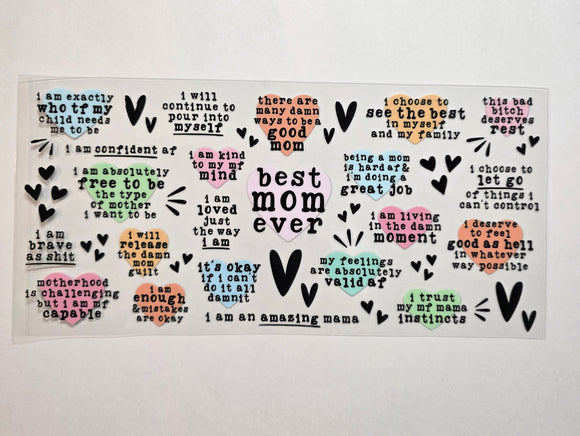 i am exactly
who tf my
child needs
me to be
i will
continue to
pour into
myself
there are
many damn
ways to be a
good
mom
i choose to
see the best
in myself
and my family
this bad
bitch
deserves
rest
i am confident af
i am kind
to my mf
mind
being a mom
is hard af &
i'm doing a
great job
i choose to
let go
of things i
can't control
i am absolutely
free to be
the type
of mother
i want to be
best
mom
ever
i am
loved
just
the way
i am
i am living
in the damn
moment
i deserve
to feel
good as hell
in whatever
way possible
i am
brave
as shit
i will
release
the damn
mom
guilt
it's okay
if i can't
do it all
damnit
my feelings
are absolutely
valid af
motherhood
is challenging
but i am mf
capable
i am
enough
& mistakes
are okay
i am an amazing mama
i trust
my mf mama
instincts